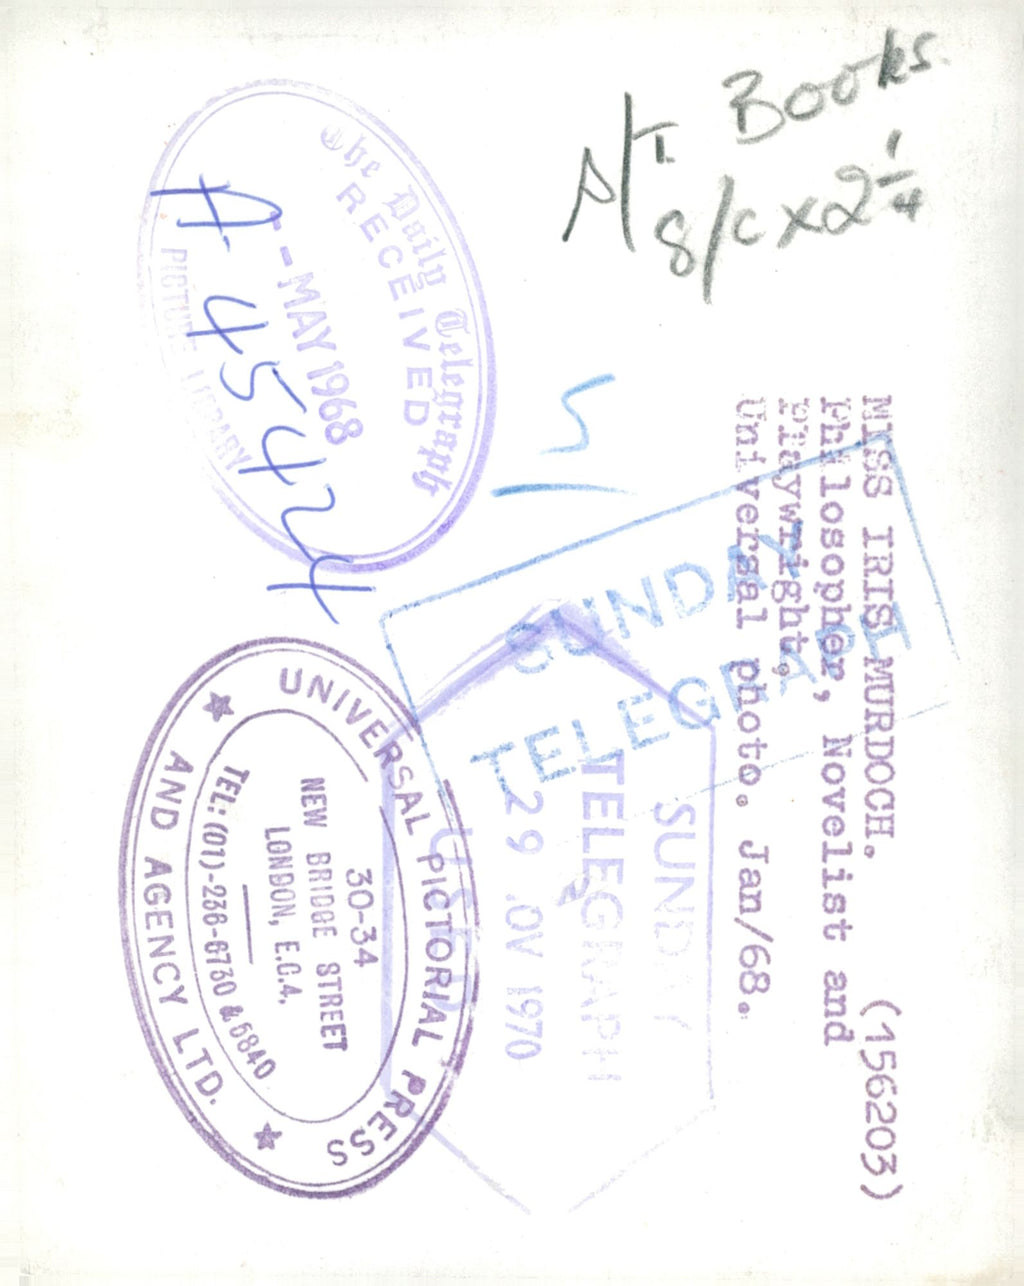 MISS IRIS MURDOCH. (156203)
Philosopher, Novelist and
Playwright,
Universal photo. Jan/68.
Books.
S/C x 2 1/4
The Daily Telegraph
RECEIVED
- MAY 1968
PICTURE LIBRARY
A 45424
SUNDAY
TELEGRAPH
SUNDAY
TELEGRAPH
29 .OV 1970
USED
UNIVERSAL PICTORIAL PRESS
AND AGENCY LTD.
30-34
NEW BRIDGE STREET
LONDON, E.C.4.
TEL: (01)-236-6730 & 5840